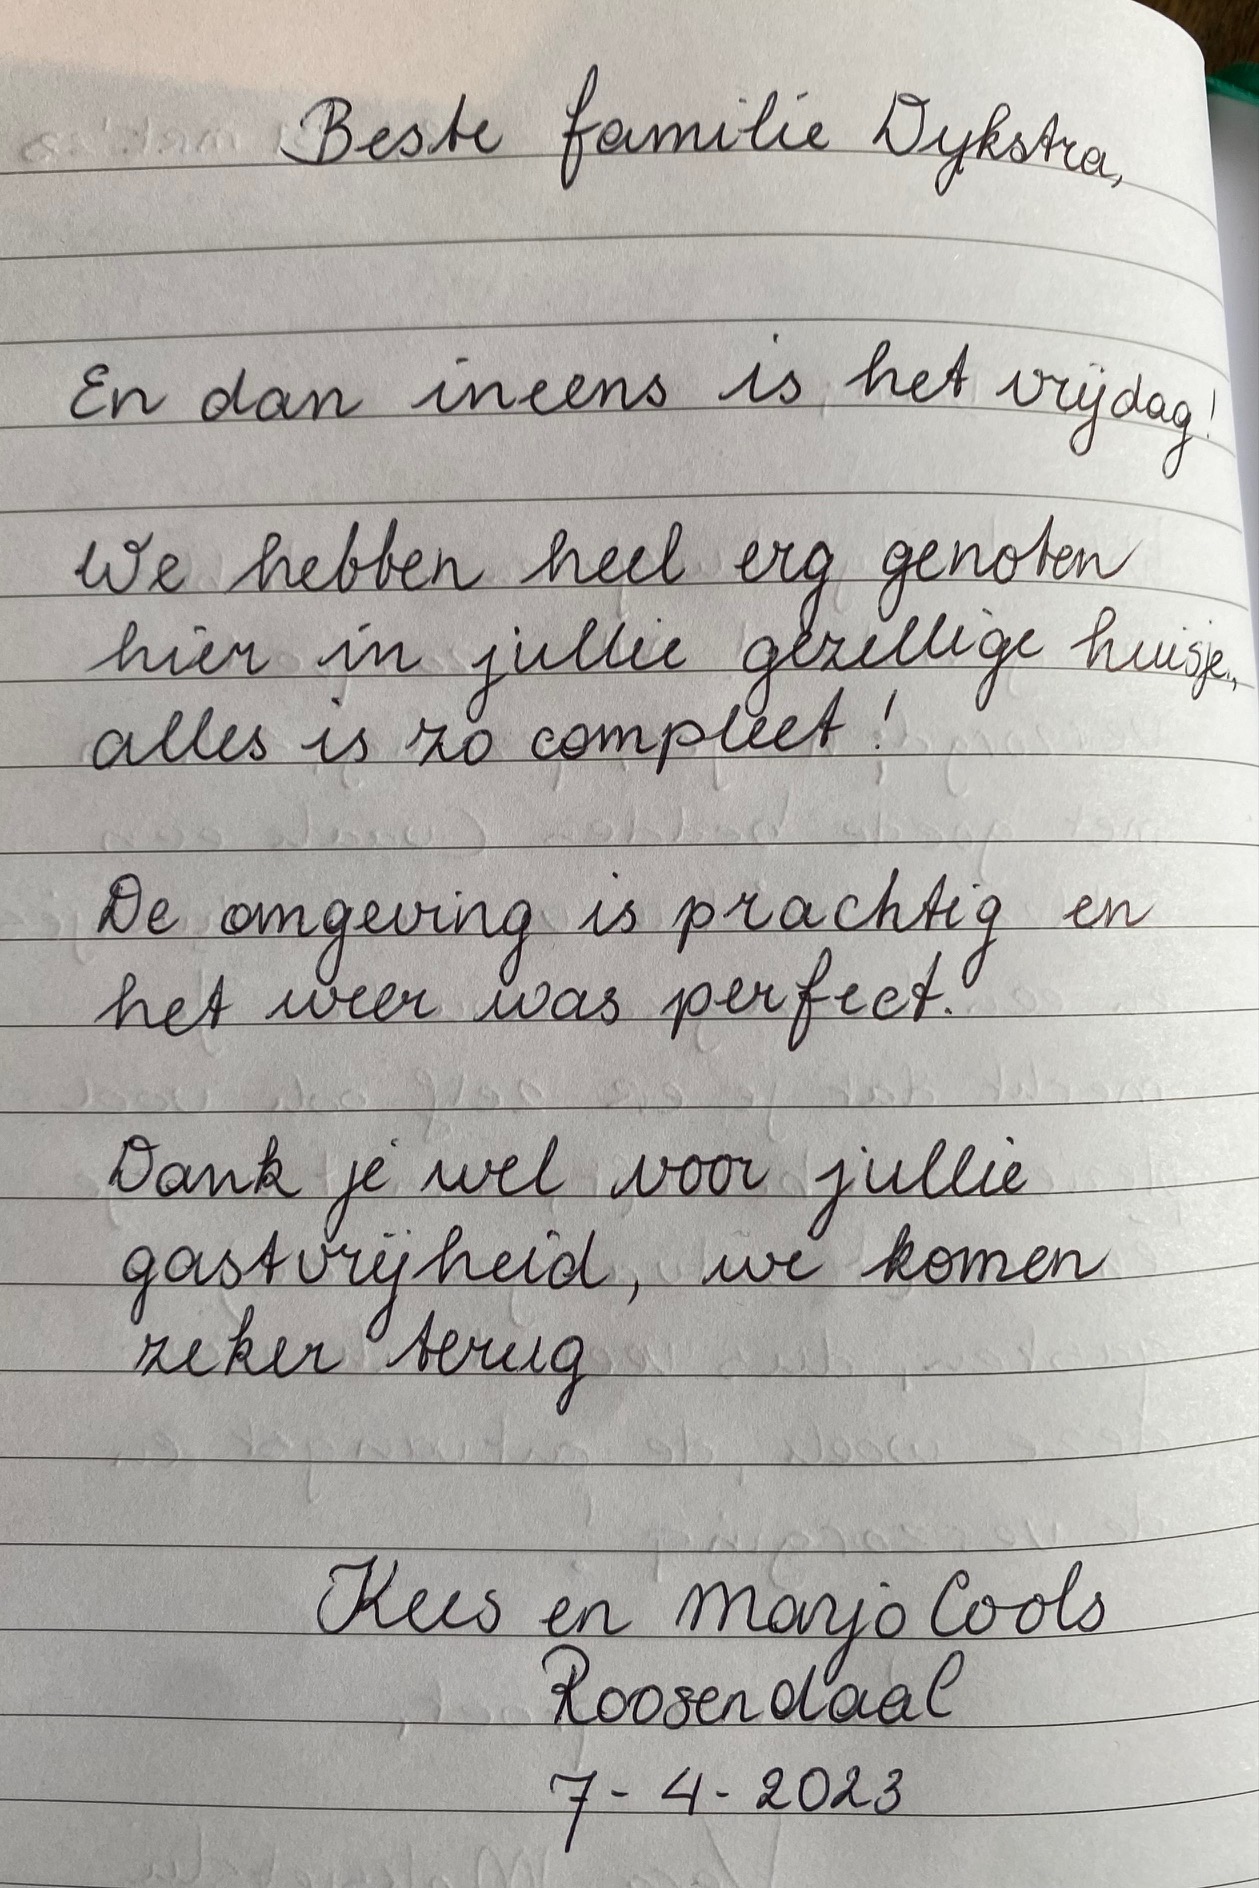 Beste familie Dykstra,
En dan ineens is het vrijdag!
We hebben heel erg genoten
hier in jullie gezellige huisje,
alles is zo compleet!
De omgeving is prachtig en
het weer was perfect.
Dank je wel voor jullie
gastvrijheid, we komen
zeker terug
Kees en Marjo Cools
Roosendaal
7-4-2023